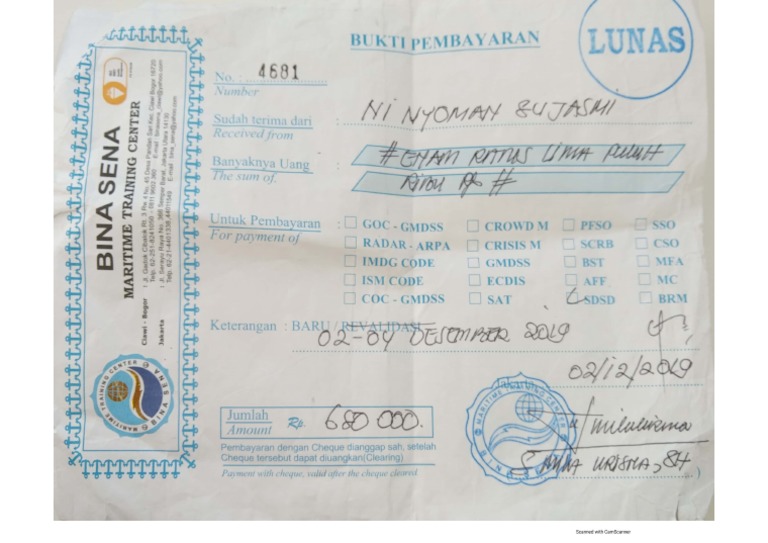 BUKTI PEMBAYARAN
LUNAS
No. : 4681
Number
Sudah terima dari : NI NYOMAN SUJASMI
Received from
Banyaknya Uang : # ENAM RATUS LIMA PULUH
The sum of. RIBU Rp #
Untuk Pembayaran :
For payment of
GOC - GMDSS CROWD M PFSO SSO
RADAR - ARPA CRISIS M SCRB CSO
IMDG CODE GMDSS BST MFA
ISM CODE ECDIS AFF MC
COC - GMDSS SAT SDSD BRM
Keterangan : BARU / REVALIDASI
02-04 DESEMBER 2019
02/12/2019
Jumlah Rp. 680 000.
Amount
Pembayaran dengan Cheque dianggap sah, setelah
Cheque tersebut dapat diuangkan(Clearing)
Payment with cheque, valid after the cheque cleared
MARITIME TRAINING CENTER
BINA
BINA SENA
MARITIME TRAINING CENTER
Ciawi - Bogor
Jakarta
MARITIME TRAINING CENTER
BINA SENA
Scanned with CamScanner